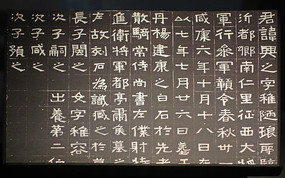 君諱興之字稚陋琅耶臨
沂都鄉南仁里征西大將
軍行參軍贛令春秋卅
咸康六年十月十八日
以七年七月廿六日
丹楊建康之白石於先考
散騎常侍尚書左僕射特
進衛將軍都亭肅侯墓之
左故刻石為識臧之於墓
長子閩之 女字稚容
次子嗣之 出養第二伯
次子咸之
次子預之